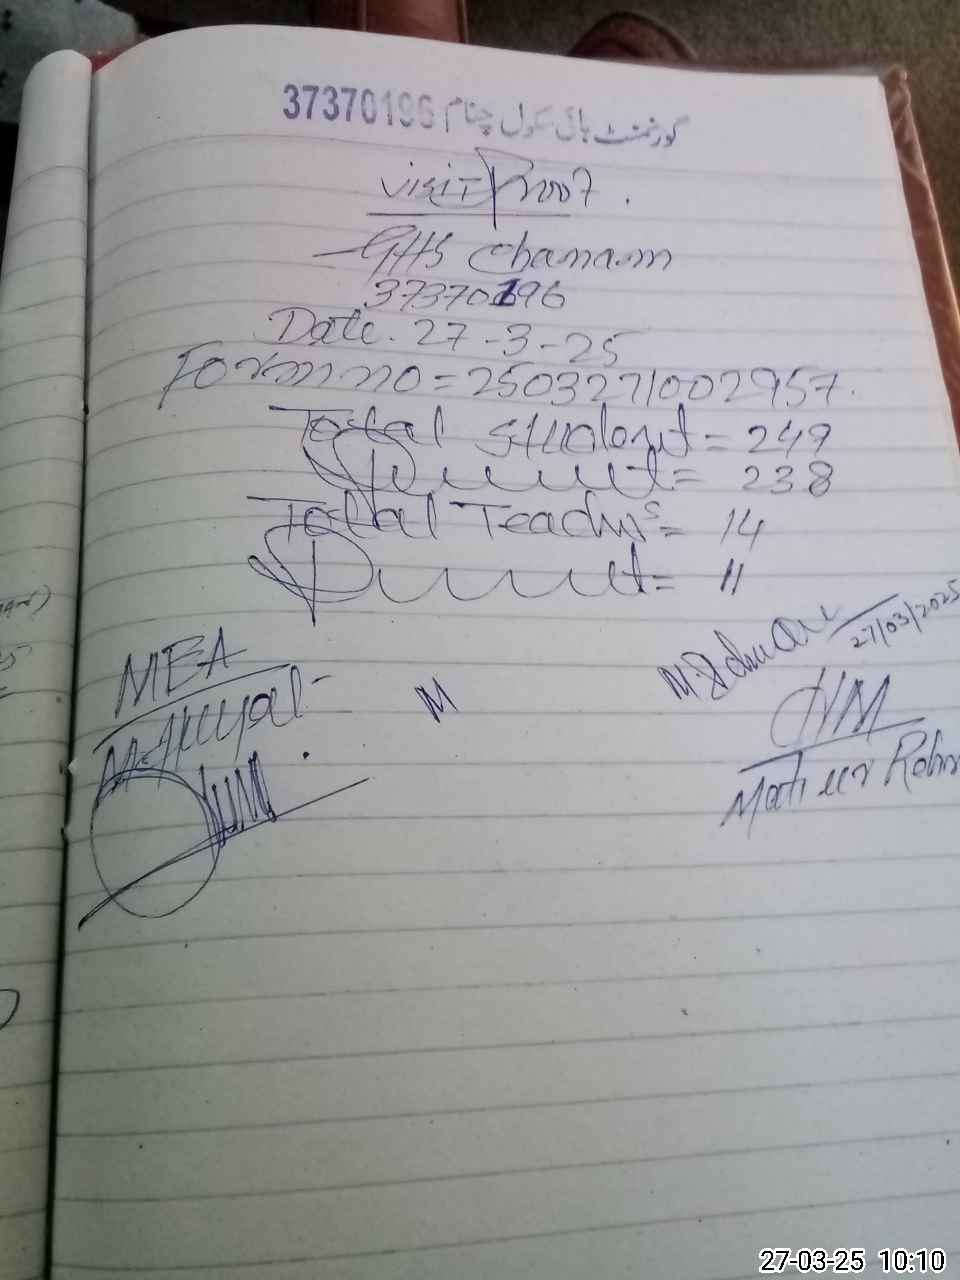 گورنمنٹ ہائی سکول چنام 37370196
visit Proof.
GHS Chanam
37370196
Date. 27-3-25
Form no = 2503271002957.
Total student = 249
Present = 238
Total Teachers = 14
Present = 11
27/03/2025
MEA
HM
M
Mati ur Rehm
27-03-25 10:10